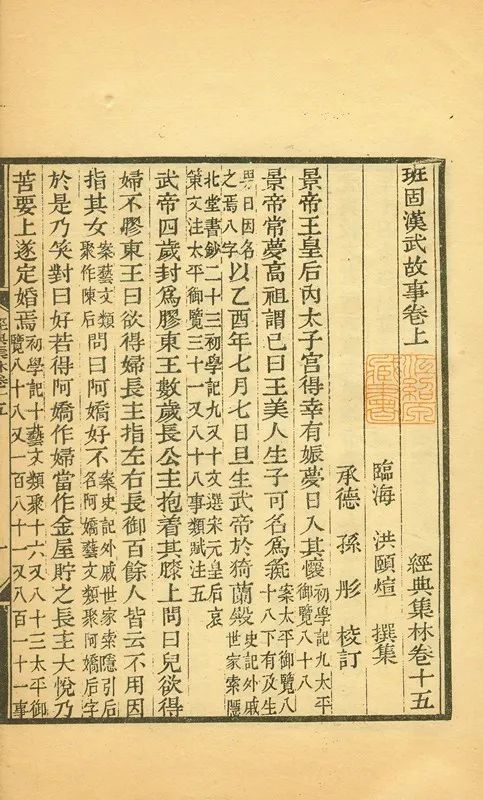 班固漢武故事卷上　經典集林卷十五
臨海　洪頤煊　撰集
承德　孫彤　校訂
景帝王皇后內太子宮得幸有娠夢日入其懷初學記九太平御覽八十八
景帝常夢高祖謂已曰王美人生子可名爲彘案太平御覽八十八下有及生
男因名之焉八字以乙酉年七月七日旦生武帝於猗蘭殿史記外戚世家索隱
北堂書鈔二十三初學記九又十文選宋元皇后哀策文注太平御覽三十一又八十八事類賦注五
武帝四歲封爲膠東王數歲長公主抱着其膝上問曰兒欲得
婦不膠東王曰欲得婦長主指左右長御百餘人皆云不用因
指其女案藝文類聚作陳后問曰阿嬌好不案史記外戚世家索隱引后名阿嬌藝文類聚阿嬌后字
於是乃笑對曰好若得阿嬌作婦當作金屋貯之長主大悅乃
苦要上遂定婚焉初學記十藝文類聚十六又八十三太平御覽八十八又一百八十一又八百一十一事
經典集林卷十五